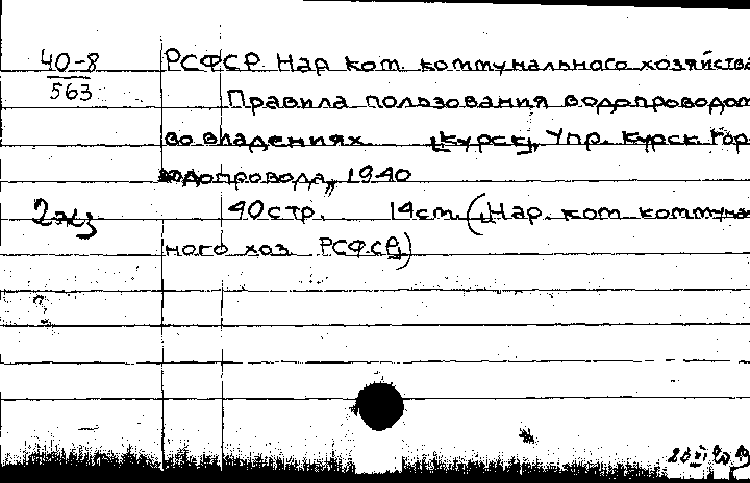 40-8
563
РСФСР. Нар ком. коммунального хозяйства
Правила пользования водопроводом
во владениях. [Курск], Упр. Курск. Гор-
водопровода, 1940
2 экз
40 стр. 14 см. ([Нар. ком коммуналь
ного хоз РСФСР])